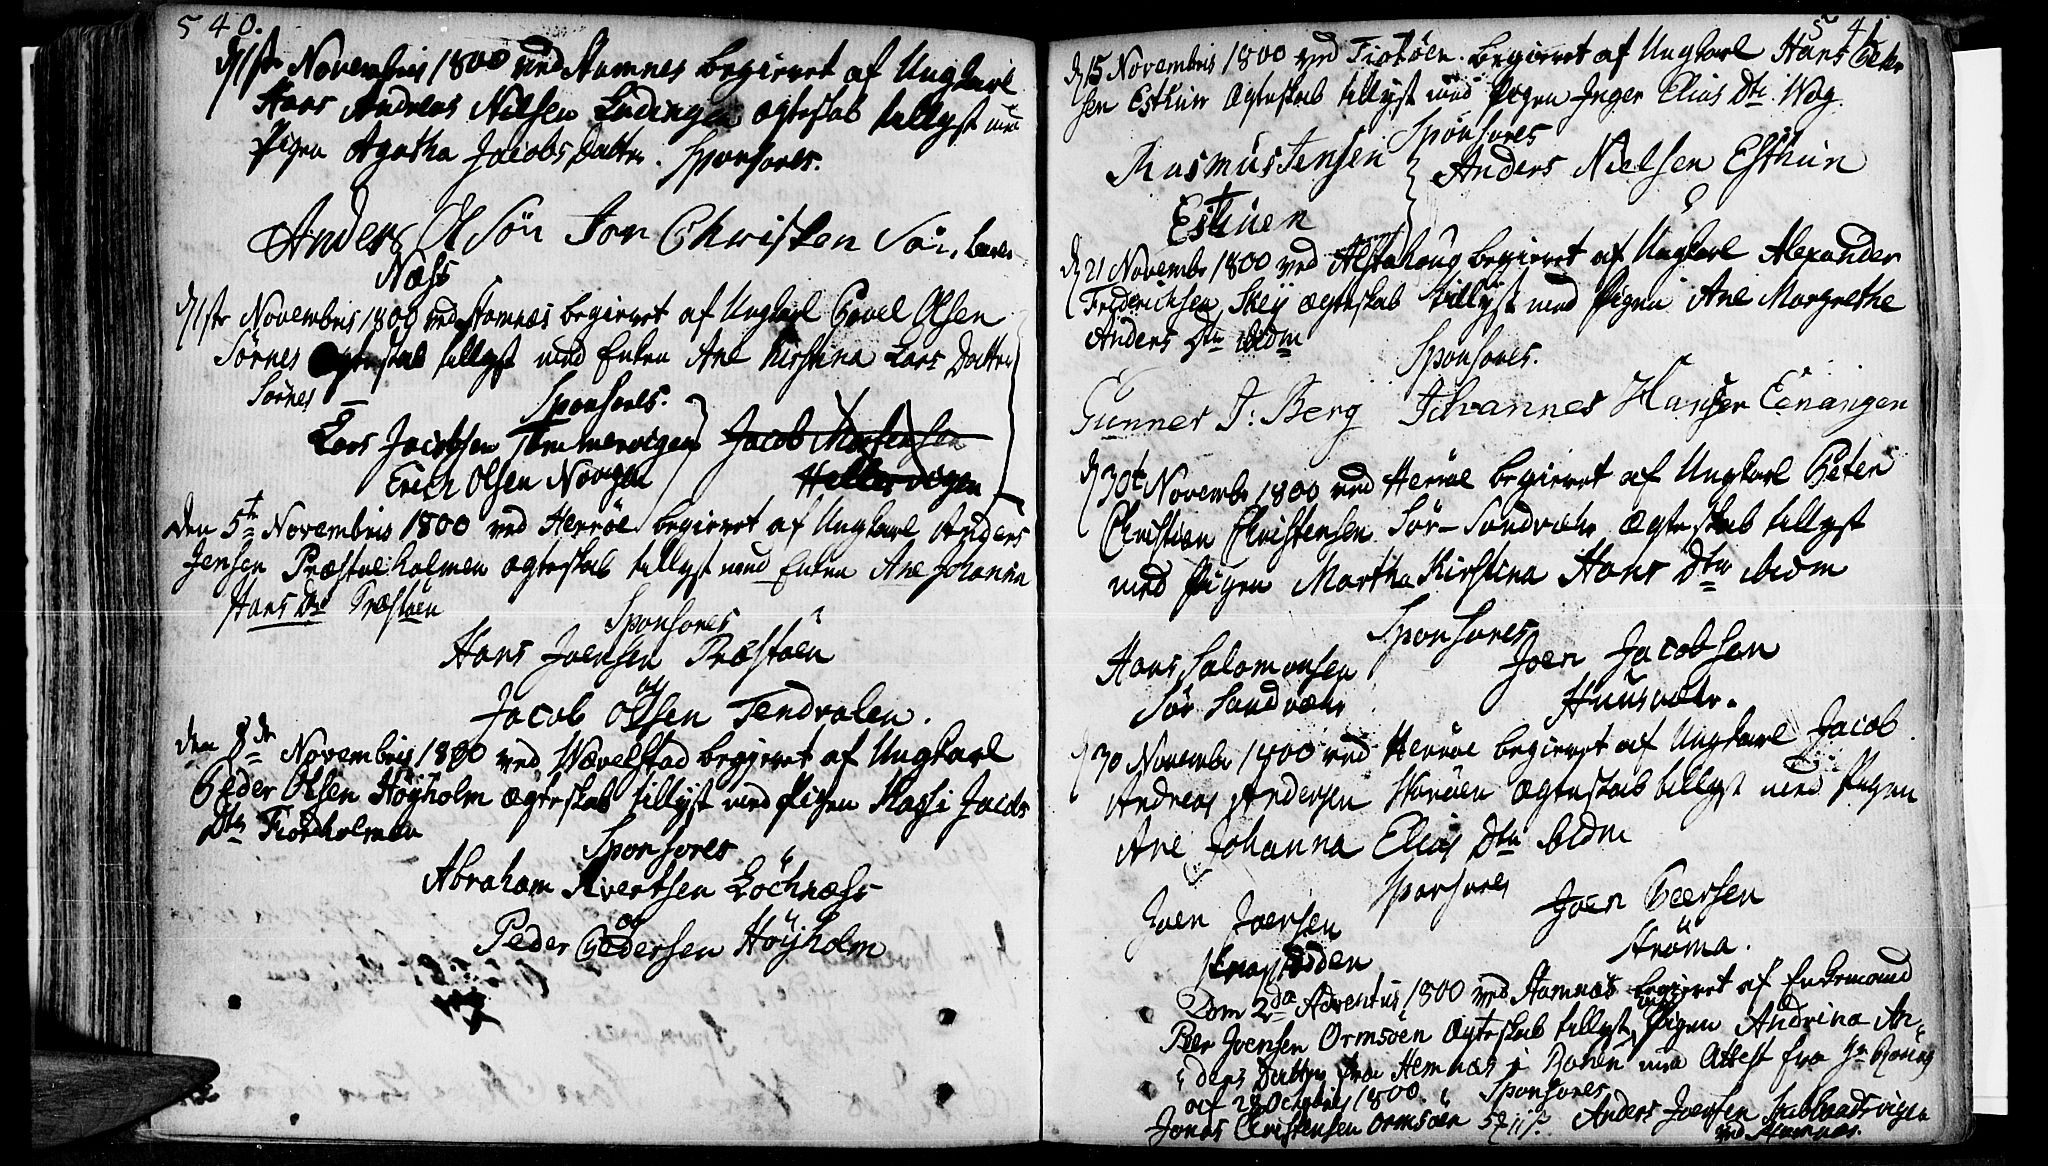 540.
d 1ste Novembris 1800 ved Stamnes begieret af Ungkarl
Hans Andreas Nielsen Ægteskab tillyst med
Pigen Agatha Jacobs Datter. Sponsores.
Anders Ol Sön Jon Christen Sön.
Næss
d 1ste Novembris 1800 ved Stamnæs begieret af Ungkarl Povel Olsen
Sörnes Ægteskab tillyst med Enken Ane Kirstina Lars Datter
Sørnes
Sponsores.
Lars Jacobsen Tømmervigen Jacob Mortensen
Erich Olsen Hellesvigen
Den 5te Novembris 1800 ved Herrøe begieret af Ungkarl Anders
Jensen Præstøeholmen Ægteskab tillyst med Enken Ane Johanna
Hans Dtr Præstøen
Sponsores
Hans Joensen Præstöen
og
Jacob Olsen Tendvalen.
den 8de Novembris 1800 ved Wævelstad begieret af Ungkarl
Peder Olsen Höyholm Ægteskab tillyst med Pigen Jacobs
Dtr Fiordholmen
Sponsores
Abraham Evertsen
og
Peder Pedersen Höyholm
541
d 15 Novembris 1800 ved begieret af Ungkarl Hans Peter
sen Esthun Ægteskab tillyst med Pigen Inger Elias Dtr. Wog.
Sponsores
Rasmus Jensen Anders Nielsen Esthun
Esthuen
d 21 Novembr 1800 ved Alstahoug begieret af Ungkarl Alexander
Friderichsen Skey Ægteskab tillyst med Pigen Ane Margrethe
Anders Dtr ibidm
Sponsores.
Gunner J: Berg Johannes Hansen
d 30te Novembr 1800 ved Herrøe begieret af Ungkarl Peter
Christian Christensen Sör-Sandvær Ægteskab tillyst
med Pigen Martha Kirstina Hans Dtr ibidm
Sponsores
Hans Salomonsen Joen Jacobsen
Sör Sandvær Huusvær.
d 30 Novembr 1800 ved Herrøe begieret af Ungkarl Jacob
Andreas Andersen Ægteskab tillyst med Pigen
Ane Johanna Elias Dtr ibidm
Sponsores
Joen Joensen Joen Peersen
Ströma.
Dom 2da Adventus 1800 ved Stamnæs begieret af Enkemand
Peer Joensen Ormsøen Ægteskab tillyst med Pigen Andrina An-
ders Datter fra Hemnæs i Ranen med Attest fra Hr
af 28 Octobris 1800. Sponsores
Jonas Christensen Ormsöen Anders Joensen
ved Stamnæs.